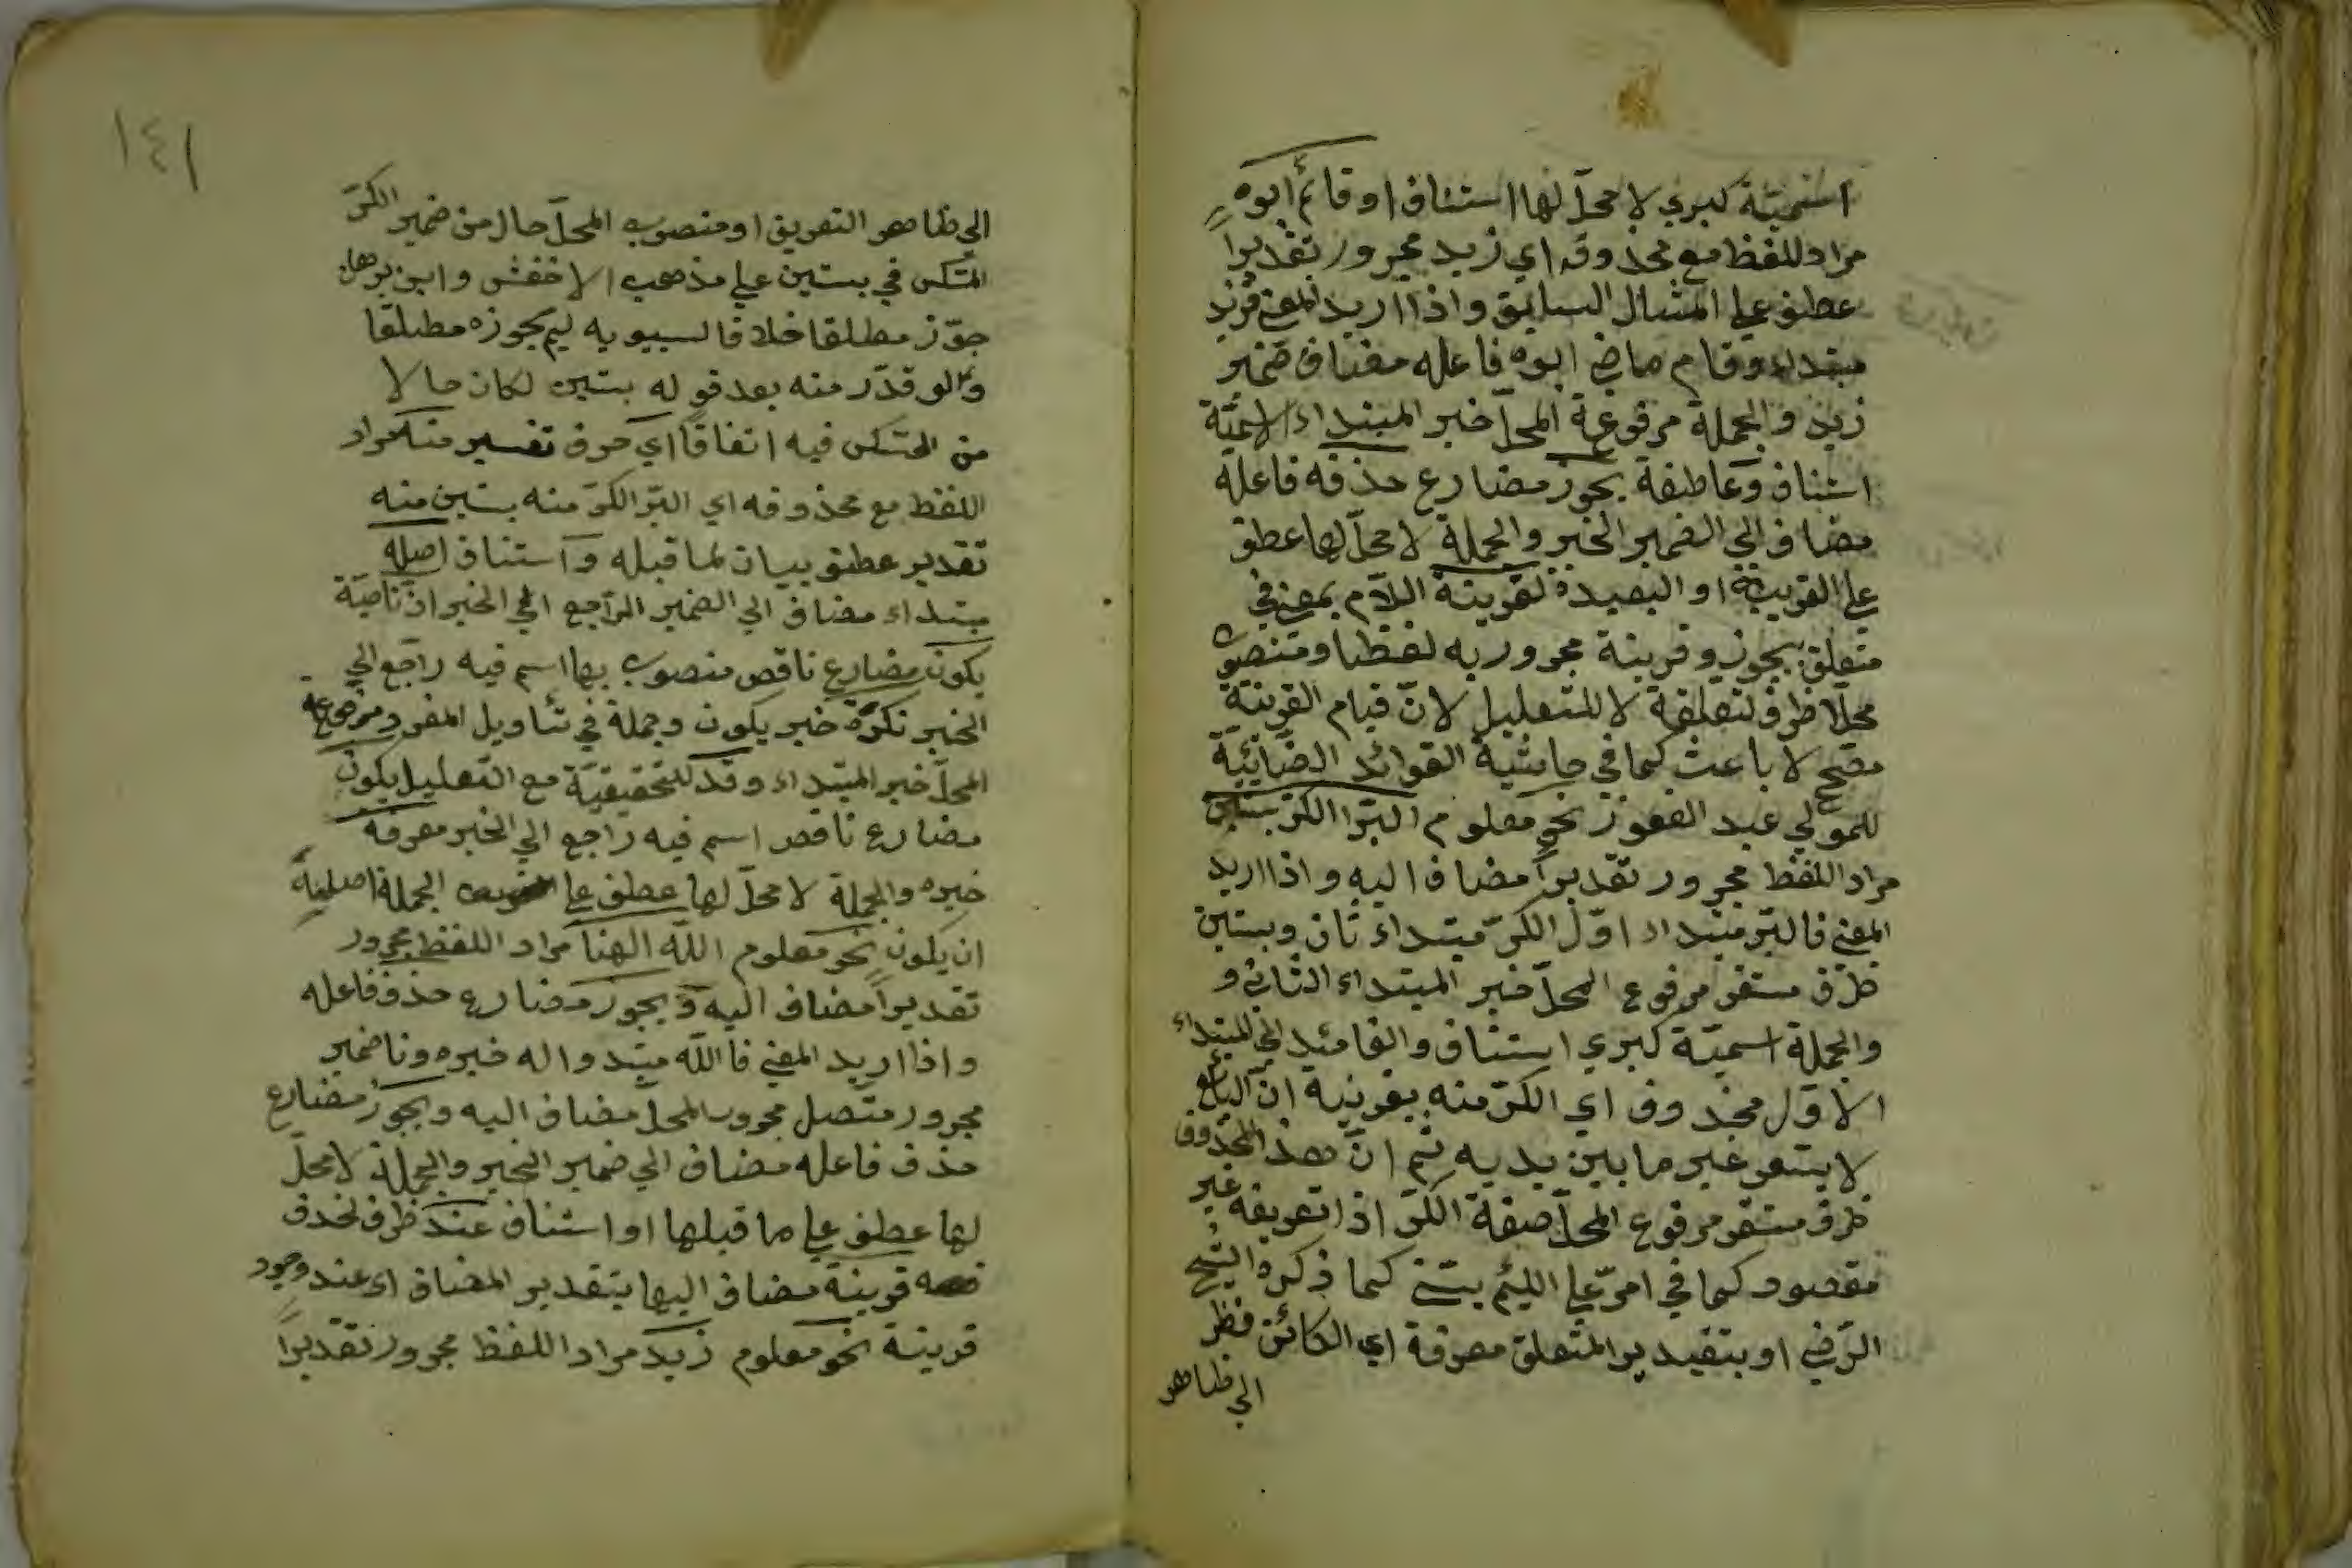 اسميّة كبري لا محلّ لها استئناف او قائم ابوه
مراد اللفظ مع محذوفه اي زيد مجرور تقديراً
عطف علي المثال السابق واذا اريد المعني فزيد
مبتداء وقام ماض ابوه فاعله مضاف ضمير
زيد والجملة مرفوعة المحلّ خبر المبتداء الاسميّة
استئناف وعاطفة يجوز مضارع حذفه فاعله
مضاف الي الضمير الخبر والجملة لا محلّ لها عطف
علي القريبة او البعيدة لقرينة اللّام بمعني في
متعلق بيجوز وقرينة مجرور به لفظا ومنصوب
محلّا ظرف لتعلقة لا للتعليل لانّ قيام القرينة
مصحح لا باعث كما في حاشية الفوائد الضيائيّة
للمولي عبد الغفور نحو معلوم البرّ الكرّ بستين
مراد اللفظ مجرور تقديراً مضاف اليه واذا اريد
المعني فالبرّ مبتداء اوّل الكرّ مبتداء ثان وبستين
ظرف مستقر مرفوع المحلّ خبر المبتداء الثاني و
والجملة اسميّة كبري استئناف والعائد الي المبتداء
الاوّل محذوف اي الكرّ منه بقرينة انّ البائع
لا يسعر غير ما بين يديه ثم انّ هذ المحذوف
ظرف مستقر مرفوع المحلّ صفة الكرّ اذا تعريفه غير
مقصود كما في امرّ علي اللئيم يسبّني كما ذكره الشيخ
الرّضي او بتقدير المتعلق معرفة اي الكائن فظر
الي ظاهر
١٤١
الي ظاهر التعريف او منصوب المحلّ حال من ضمير الكرّ
المستكن في بستين علي مذهب الاخفش وابن برهان
جوّز مطلقا خلافا لسيبويه لم يجوزه مطلقا
ولو قدّر منه بعد قوله بستين لكان حالا
من المستكن فيه اتفاقاً اي حرف تفسير منه مراد
اللفظ مع محذوفه اي البّر الكرّ منه بستين منه
تقدير عطف بيان لما قبله وآستئناف اصله
مبتداء مضاف الي الضمير الرّاجع الي الخبر ان ناصبة
يكون مضارع ناقص منصوب بها اسم فيه راجع الي
الخبر نكرة خبر يكون وجملة في تأويل المفرد مرفوعه
المحلّ خبر المبتداء وقد للتحقيقيّة مع التّعليل يكون
مضارع ناقص اسم فيه راجع الي الخبر معرفة
خبره والجملة لا محلّ لها عطف علي الجملة اصليه
ان يكون نحو معلوم اللّه الهنا مراد اللفظ مجرور
تقديراً مضاف اليه وَيجوز مضارع حذف فاعله
واذا اريد المعني فاللّه مبتدو اله خبره ونا ضمير
مجرور متّصل مجرور المحلّ مضاف اليه ويجوز مضارع
حذف فاعله مضاف الي ضمير الخبر والجملة لا محلّ
لها عطف علي ما قبلها او استئناف عند ظرف لحذف
قرينة مضاف اليها بتقدير المضاف اي عند وجود
قرينة نحو معلوم زيد مراد اللفظ مجرور تقديراً